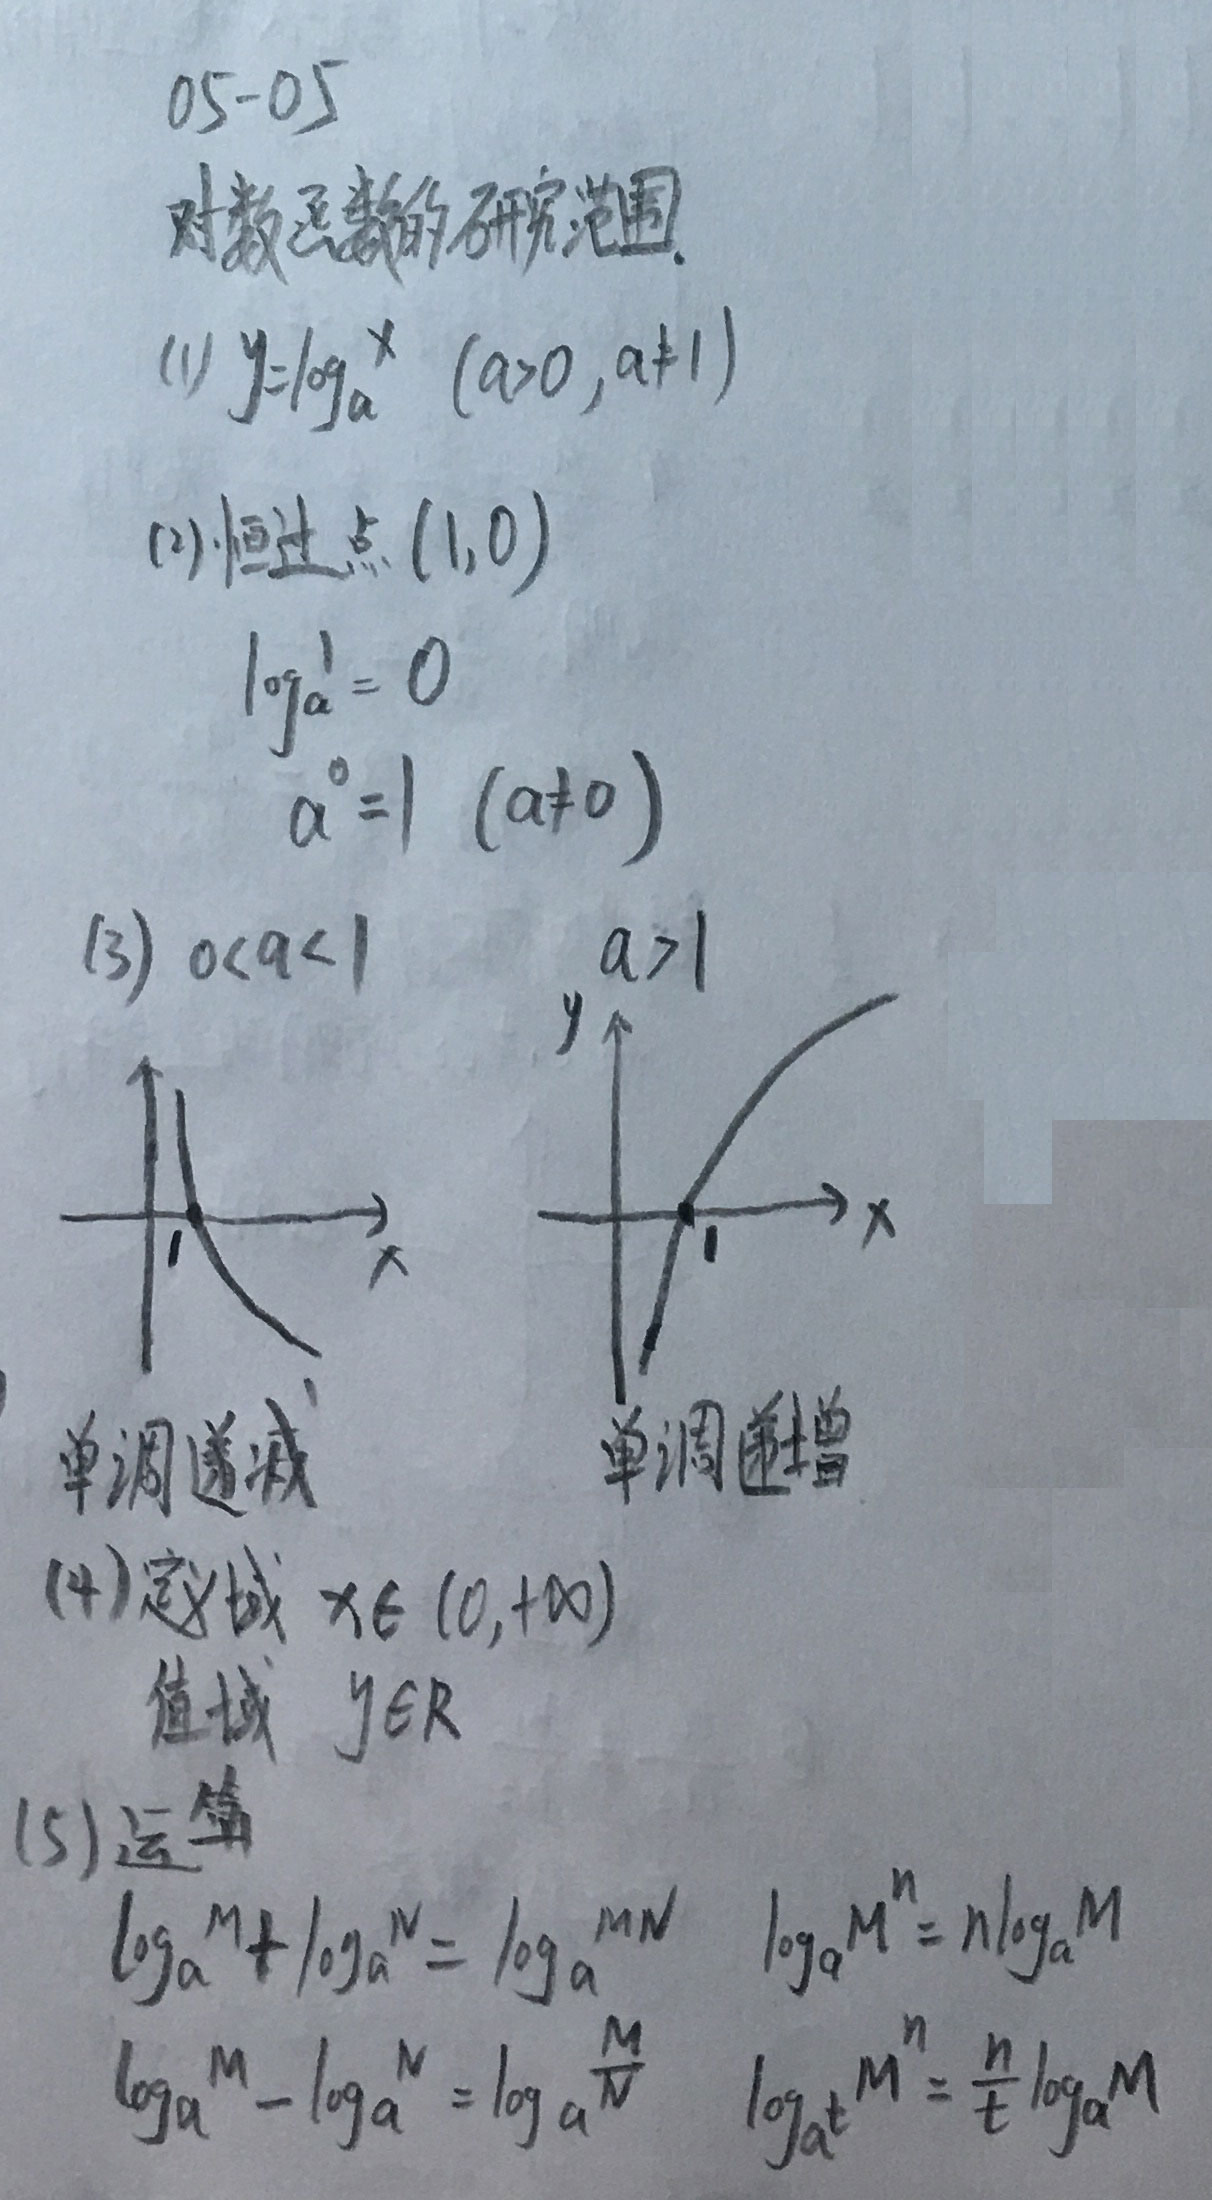 05-05
对数函数的研究范围.
(1) y=logₐx (a>0,a≠1)
(2).恒过点(1,0)
logₐ1=0
a⁰=1 (a≠0)
(3) 0<a<1 a>1
y
x 1
x 1
单调递减 单调递增
(4)定义域 x∈(0,+∞)
值域 y∈R
(5)运算
logₐM+logₐN=logₐMN logₐMⁿ=nlogₐM
logₐM-logₐN=logₐM/N log_{a^t}Mⁿ=n/t logₐM